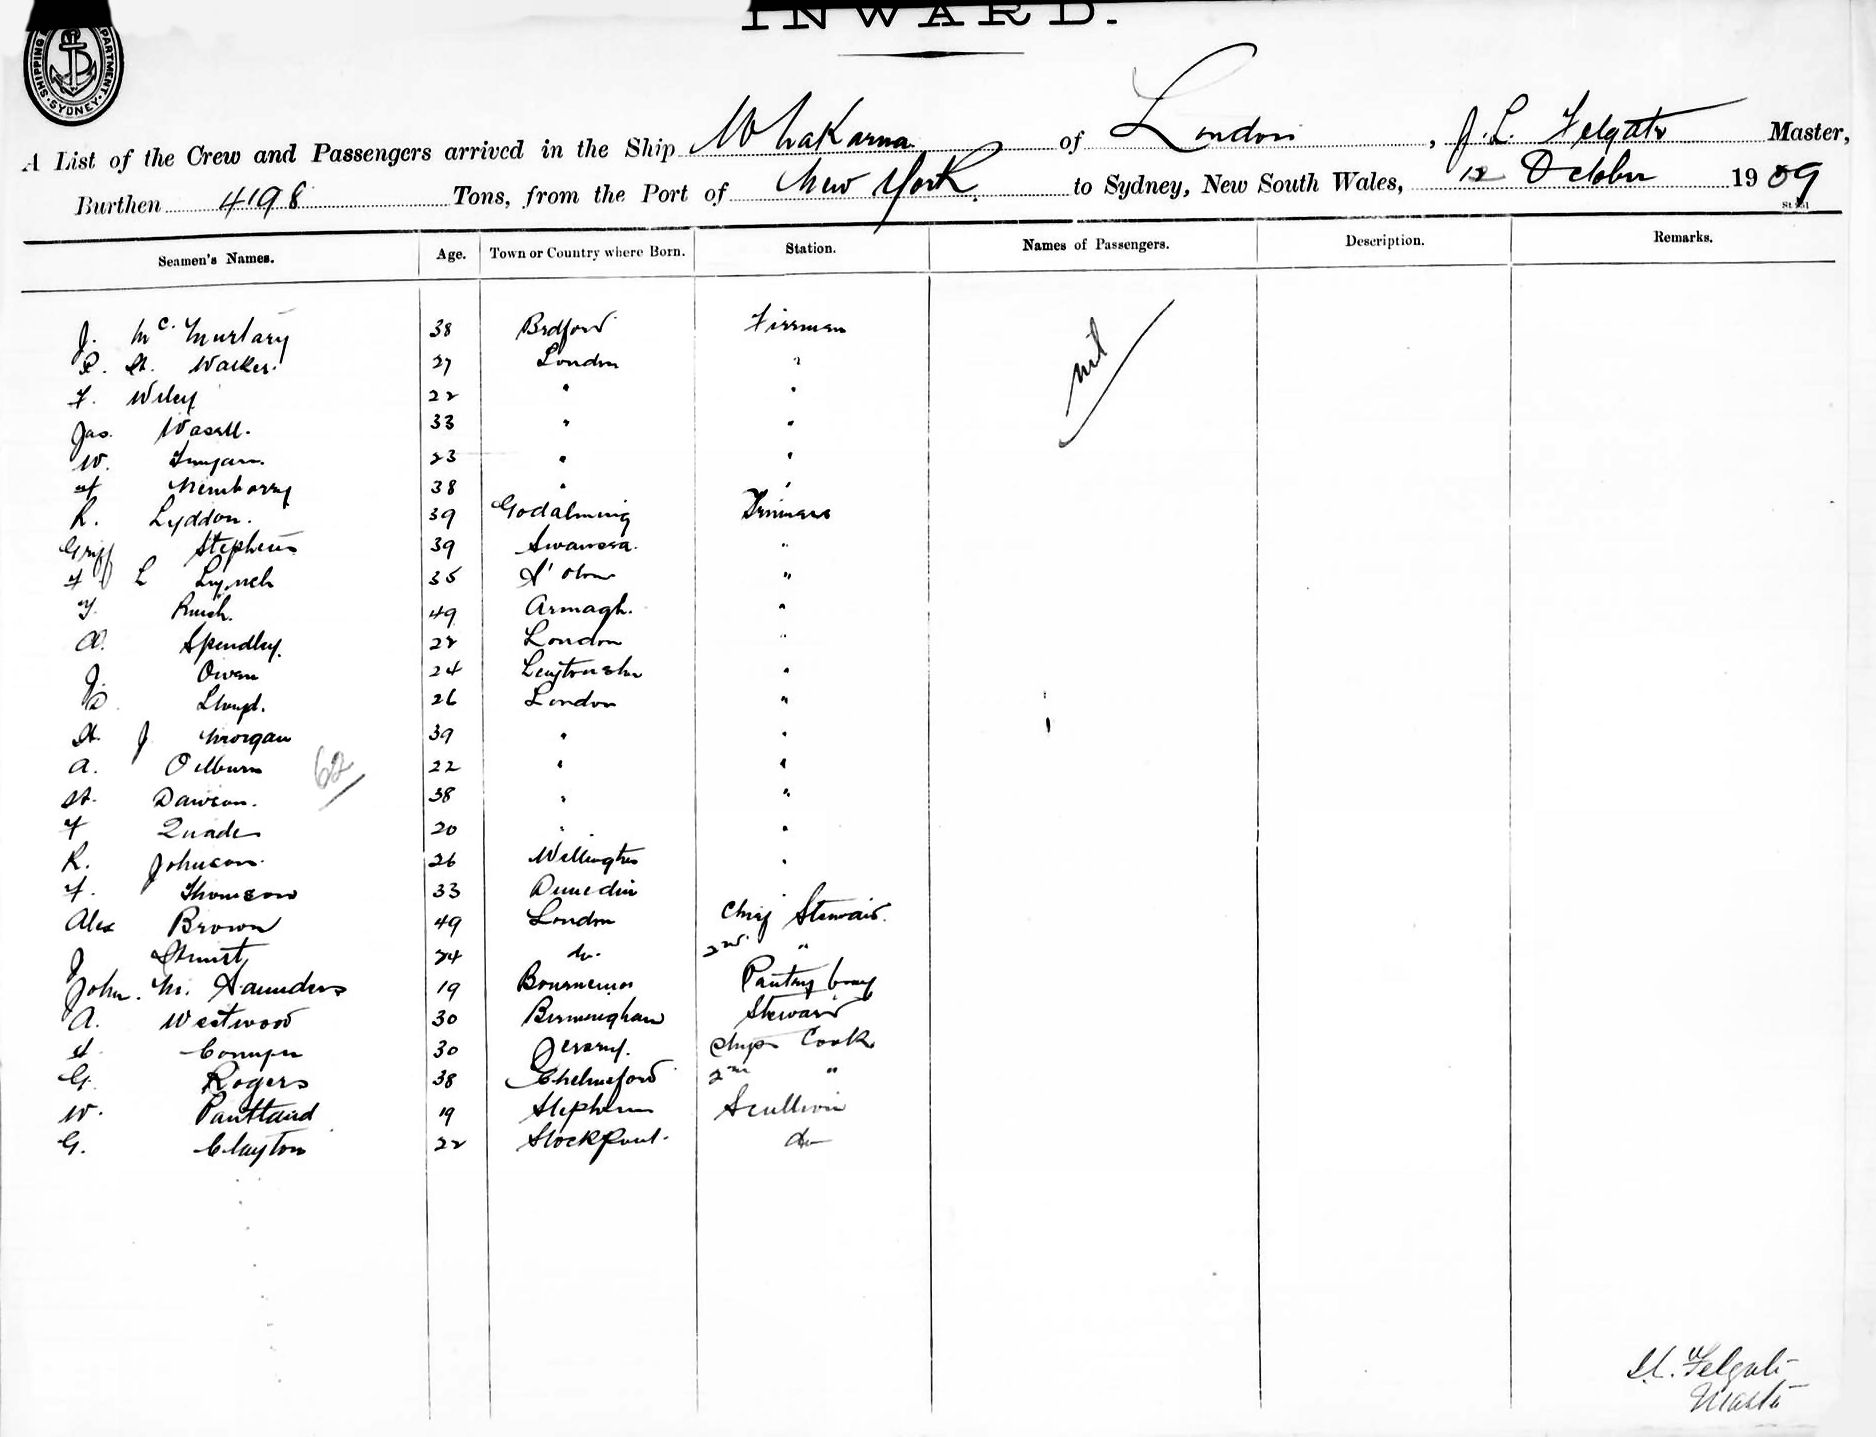 INWARD.
SHIPPING DEPARTMENT SYDNEY
A List of the Crew and Passengers arrived in the Ship Whakarua of London, J. L. Felgate Master,
Burthen 4198 Tons, from the Port of New York to Sydney, New South Wales, 12 October 1909
Seamen's Names. Age. Town or Country where Born. Station. Names of Passengers. Description. Remarks.
J. McMurtary 38 Bedford Firemen nil
P. H. Walker 27 London "
F. Wiley 22 " "
Jas. 33 " "
W. 23 " "
38 " "
R. Lyddon. 39 Godalming Trimmers
Griff Stephens 39 Swansea "
F L Lynch 35 "
49 Armagh. "
A. Spendley. 22 London "
J. Owen 24 "
D. Lloyd. 26 London "
H. J Morgan 39 " "
A. Oilburn 22 " "
62
H. Dawson. 38 " "
F Quade 20 " "
R. Johnson. 26 Wellington "
F. Thomson 33 Dunedin "
Alex Brown 49 London Chief Steward.
J 24 do. 2nd "
John. M. Saunders 19 Pantry boy
A. Westwood 30 Birmingham Steward
H 30 Jersey. Ships Cook
G. Rogers 38 Chelmsford 2nd "
W. Pauttard 19
G. Clayton 22 Stockport. do
Felgate
Master